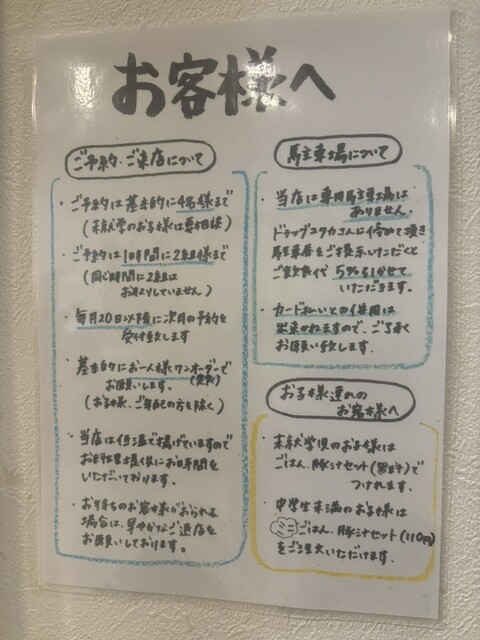 お客様へ
ご予約・ご来店について
・ご予約は基本的に4名様まで
(未就学のお子様は要相談)
・ご予約は1時間に2組様まで
(同じ時間に2組は
お取りしていません)
・毎月20日以降に次月の予約を
受付致します
・基本的にお一人様ワンオーダーで
お願いします。
(お子様、ご年配の方を除く)
・当店は低温で揚げていますので
お料理提供にお時間を
いただいております。
・お待ちのお客様がおられる
場合は、早やかなご退店を
お願いしております。
駐車場について
・当店は専用駐車場は
ありません。
ドラッグユタカさんに停めて頂き
駐車券をご提示いただくと
ご飲食代5%引かせて
いただきます。
・カード払いとの併用は
出来かねますので、ご了承
お願い致します。
お子様連れの
お客様へ
・未就学児のお子様は
ごはん、豚汁セット(無料)で
つけれます。
・中学生未満のお子様は
ミニごはん、豚汁セット(110円)
をご注文いただけます。